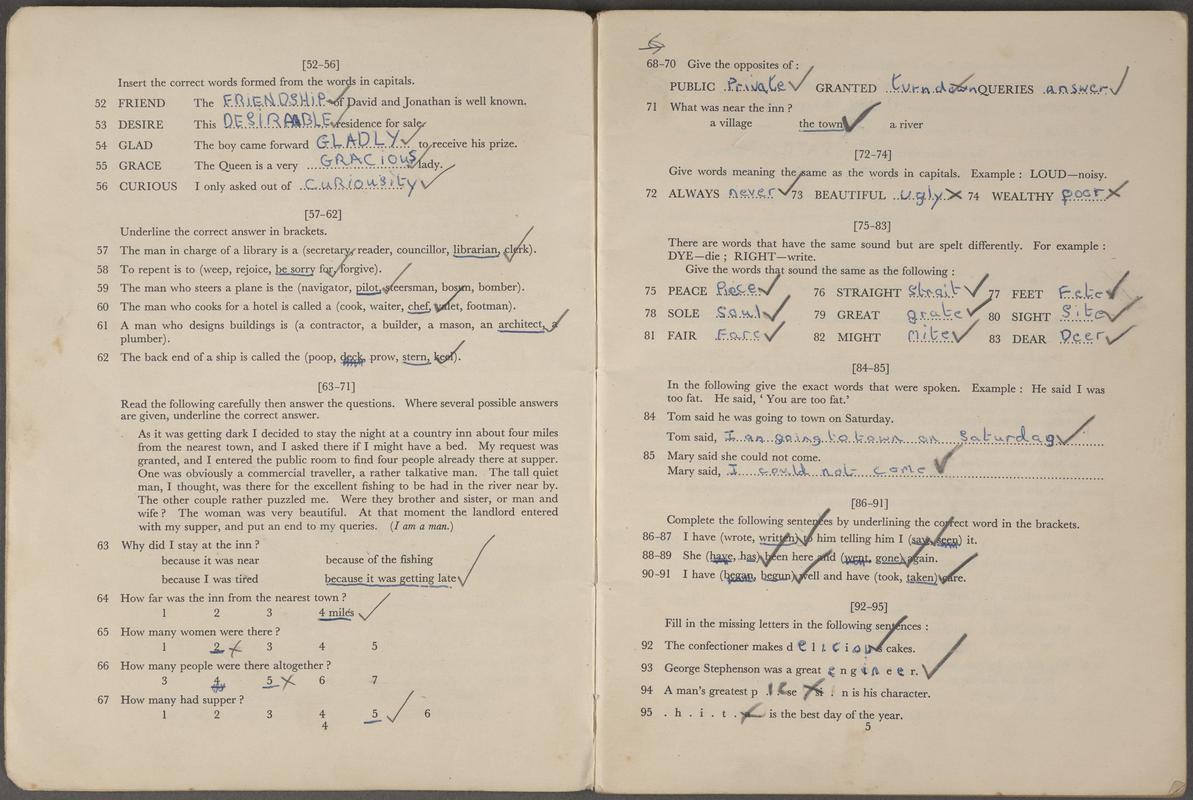 [52–56]
Insert the correct words formed from the words in capitals.
52 FRIEND The FRiENDSHiP of David and Jonathan is well known.
53 DESIRE This DESiRABLE residence for sale.
54 GLAD The boy came forward GLADLY to receive his prize.
55 GRACE The Queen is a very GRACiOUS lady.
56 CURIOUS I only asked out of CuRiousity
[57–62]
Underline the correct answer in brackets.
57 The man in charge of a library is a (secretary, reader, councillor, librarian, clerk).
58 To repent is to (weep, rejoice, be sorry for, forgive).
59 The man who steers a plane is the (navigator, pilot, steersman, bosun, bomber).
60 The man who cooks for a hotel is called a (cook, waiter, chef, valet, footman).
61 A man who designs buildings is (a contractor, a builder, a mason, an architect, a
plumber).
62 The back end of a ship is called the (poop, deck, prow, stern, keel).
[63–71]
Read the following carefully then answer the questions. Where several possible answers
are given, underline the correct answer.
As it was getting dark I decided to stay the night at a country inn about four miles
from the nearest town, and I asked there if I might have a bed. My request was
granted, and I entered the public room to find four people already there at supper.
One was obviously a commercial traveller, a rather talkative man. The tall quiet
man, I thought, was there for the excellent fishing to be had in the river near by.
The other couple rather puzzled me. Were they brother and sister, or man and
wife? The woman was very beautiful. At that moment the landlord entered
with my supper, and put an end to my queries. (I am a man.)
63 Why did I stay at the inn?
because it was near because of the fishing
because I was tired because it was getting late
64 How far was the inn from the nearest town?
1 2 3 4 miles
65 How many women were there?
1 2 3 4 5
66 How many people were there altogether?
3 4 5 6 7
67 How many had supper?
1 2 3 4 5 6
4
68–70 Give the opposites of:
PUBLIC Private GRANTED turn down QUERIES answer
71 What was near the inn?
a village the town a river
[72–74]
Give words meaning the same as the words in capitals. Example: LOUD—noisy.
72 ALWAYS never 73 BEAUTIFUL ugly 74 WEALTHY poor
[75–83]
There are words that have the same sound but are spelt differently. For example:
DYE—die; RIGHT—write.
Give the words that sound the same as the following:
75 PEACE Piece 76 STRAIGHT Strait 77 FEET Fete
78 SOLE Soul 79 GREAT grate 80 SIGHT Site
81 FAIR Fare 82 MIGHT Mite 83 DEAR Deer
[84–85]
In the following give the exact words that were spoken. Example: He said I was
too fat. He said, ‘You are too fat.’
84 Tom said he was going to town on Saturday.
Tom said, I am going to town on Saturday
85 Mary said she could not come.
Mary said, I could not come
[86–91]
Complete the following sentences by underlining the correct word in the brackets.
86–87 I have (wrote, written) to him telling him I (saw, seen) it.
88–89 She (have, has) been here and (went, gone) again.
90–91 I have (began, begun) well and have (took, taken) care.
[92–95]
Fill in the missing letters in the following sentences:
92 The confectioner makes d elicious cakes.
93 George Stephenson was a great engineer.
94 A man's greatest p . . . se . si . n is his character.
95 . h . i . t . . — is the best day of the year.
5